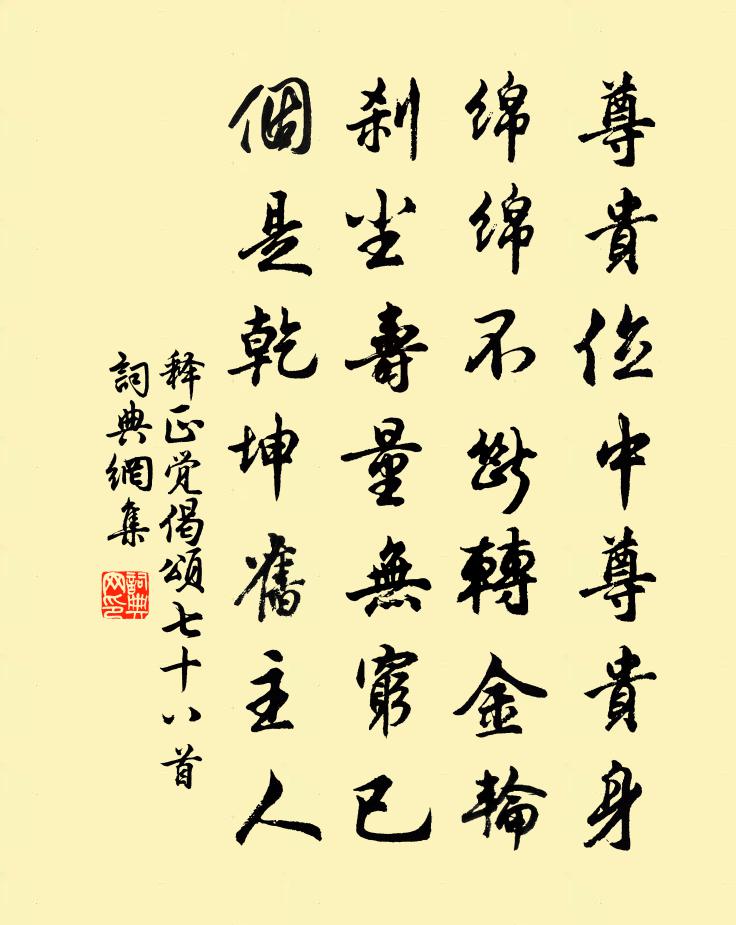 尊貴位中尊貴身
綿綿不斷轉金輪
刹尘壽量無窮已
個是乾坤舊主人
释正觉偈頌七十八首
詞典網集
詞典网印